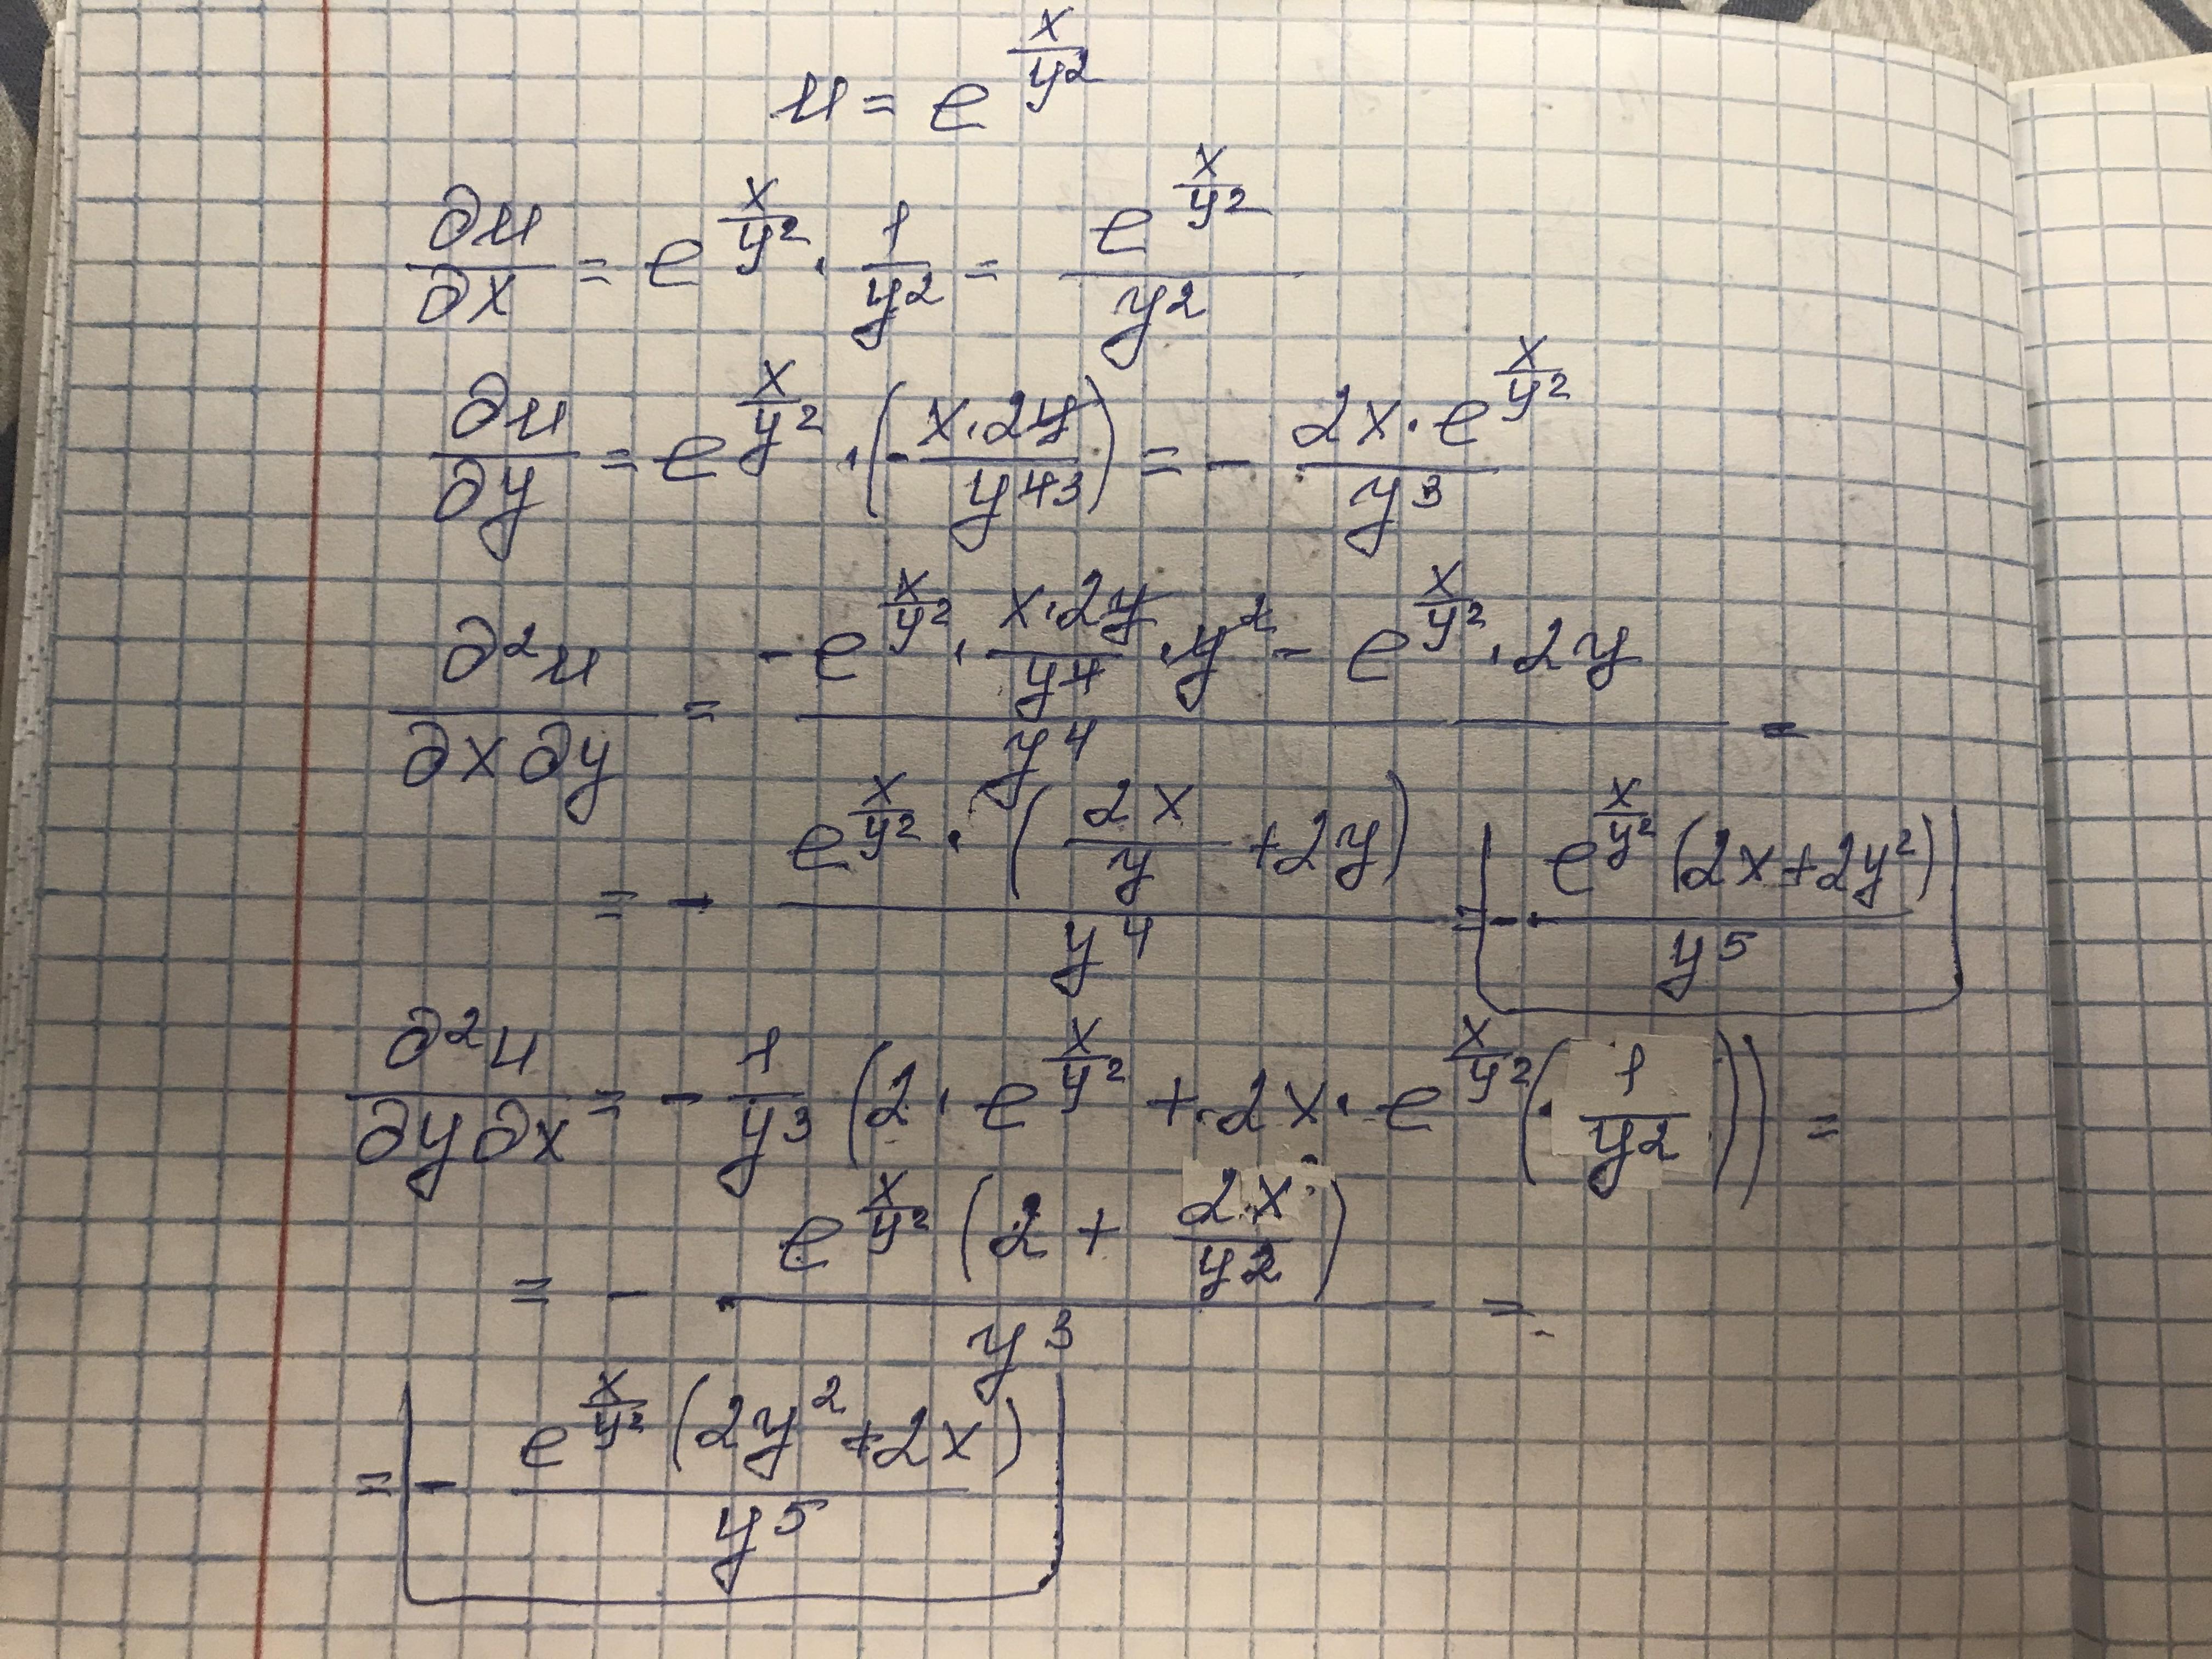 u = e^{\frac{x}{y^2}}
\frac{\partial u}{\partial x} = e^{\frac{x}{y^2}} \cdot \frac{1}{y^2} = \frac{e^{\frac{x}{y^2}}}{y^2}
\frac{\partial u}{\partial y} = e^{\frac{x}{y^2}} \cdot \left( - \frac{x \cdot 2y}{y^{4 3}} \right) = - \frac{2x \cdot e^{\frac{x}{y^2}}}{y^3}
\frac{\partial^2 u}{\partial x \partial y} = \frac{- e^{\frac{x}{y^2}} \cdot \frac{x \cdot 2y}{y^4} \cdot y^2 - e^{\frac{x}{y^2}} \cdot 2y}{y^4} =
= - \frac{e^{\frac{x}{y^2}} \cdot \left( \frac{2x}{y} + 2y \right)}{y^4} = - \frac{e^{\frac{x}{y^2}} (2x + 2y^2)}{y^5}
\frac{\partial^2 u}{\partial y \partial x} = - \frac{1}{y^3} \left( 2 \cdot e^{\frac{x}{y^2}} + 2x \cdot e^{\frac{x}{y^2}} \left( \cdot \frac{1}{y^2} \right) \right) =
= - \frac{e^{\frac{x}{y^2}} \left( 2 + \frac{2x}{y^2} \right)}{y^3} =
= - \frac{e^{\frac{x}{y^2}} (2y^2 + 2x)}{y^5}